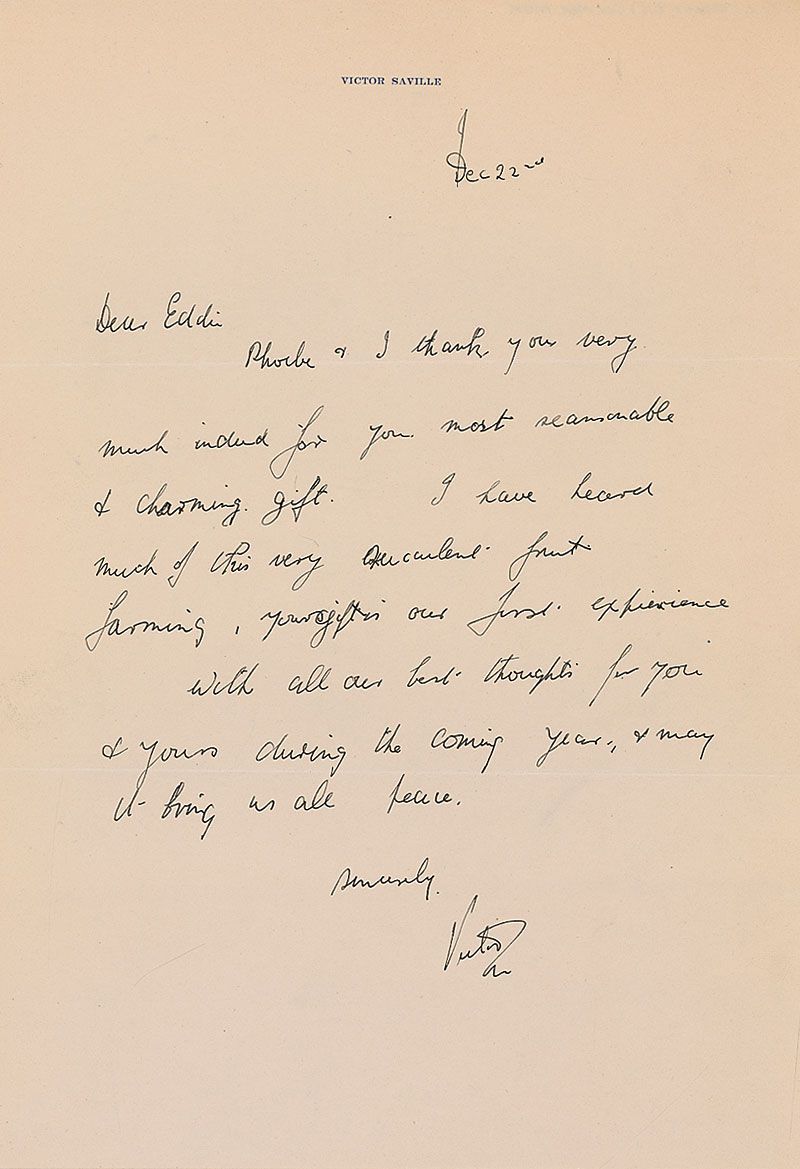 VICTOR SAVILLE
Dec 22nd
Dear Eddie
Phoebe & I thank you very
much indeed for you most seansonable
& charming gift. I have heard
much of this very succulent fruit
farming, your gift is our first experience
with all our best thoughts for you
& yours during the coming year, & may
it bring us all peace.
Sincerely
Victor